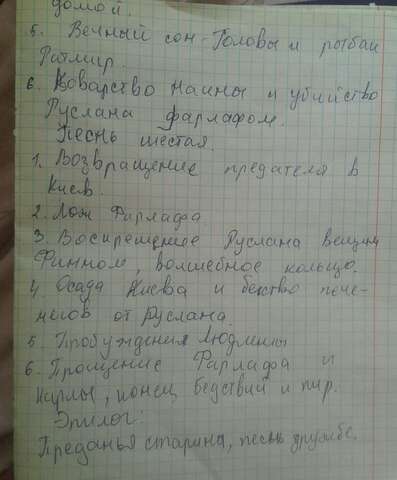 домой.
5. Вечный сон-Головы и рыбак
Ратмир.
6. Коварство Наины и убийство
Руслана Фарлафом.
Песнь шестая.
1. Возвращение предателя в
Киев.
2. Лож Фарлафа
3. Воскрешение Руслана вещим
Финном, волшебное кольцо.
4. Осада Киева и бегство пече-
негов от Руслана.
5. Пробуждения Людмилы
6. Прощение Фарлафа и
Карлы, конец бедствий и пир.
Эпилог:
Преданья старина, песнь дружбе.